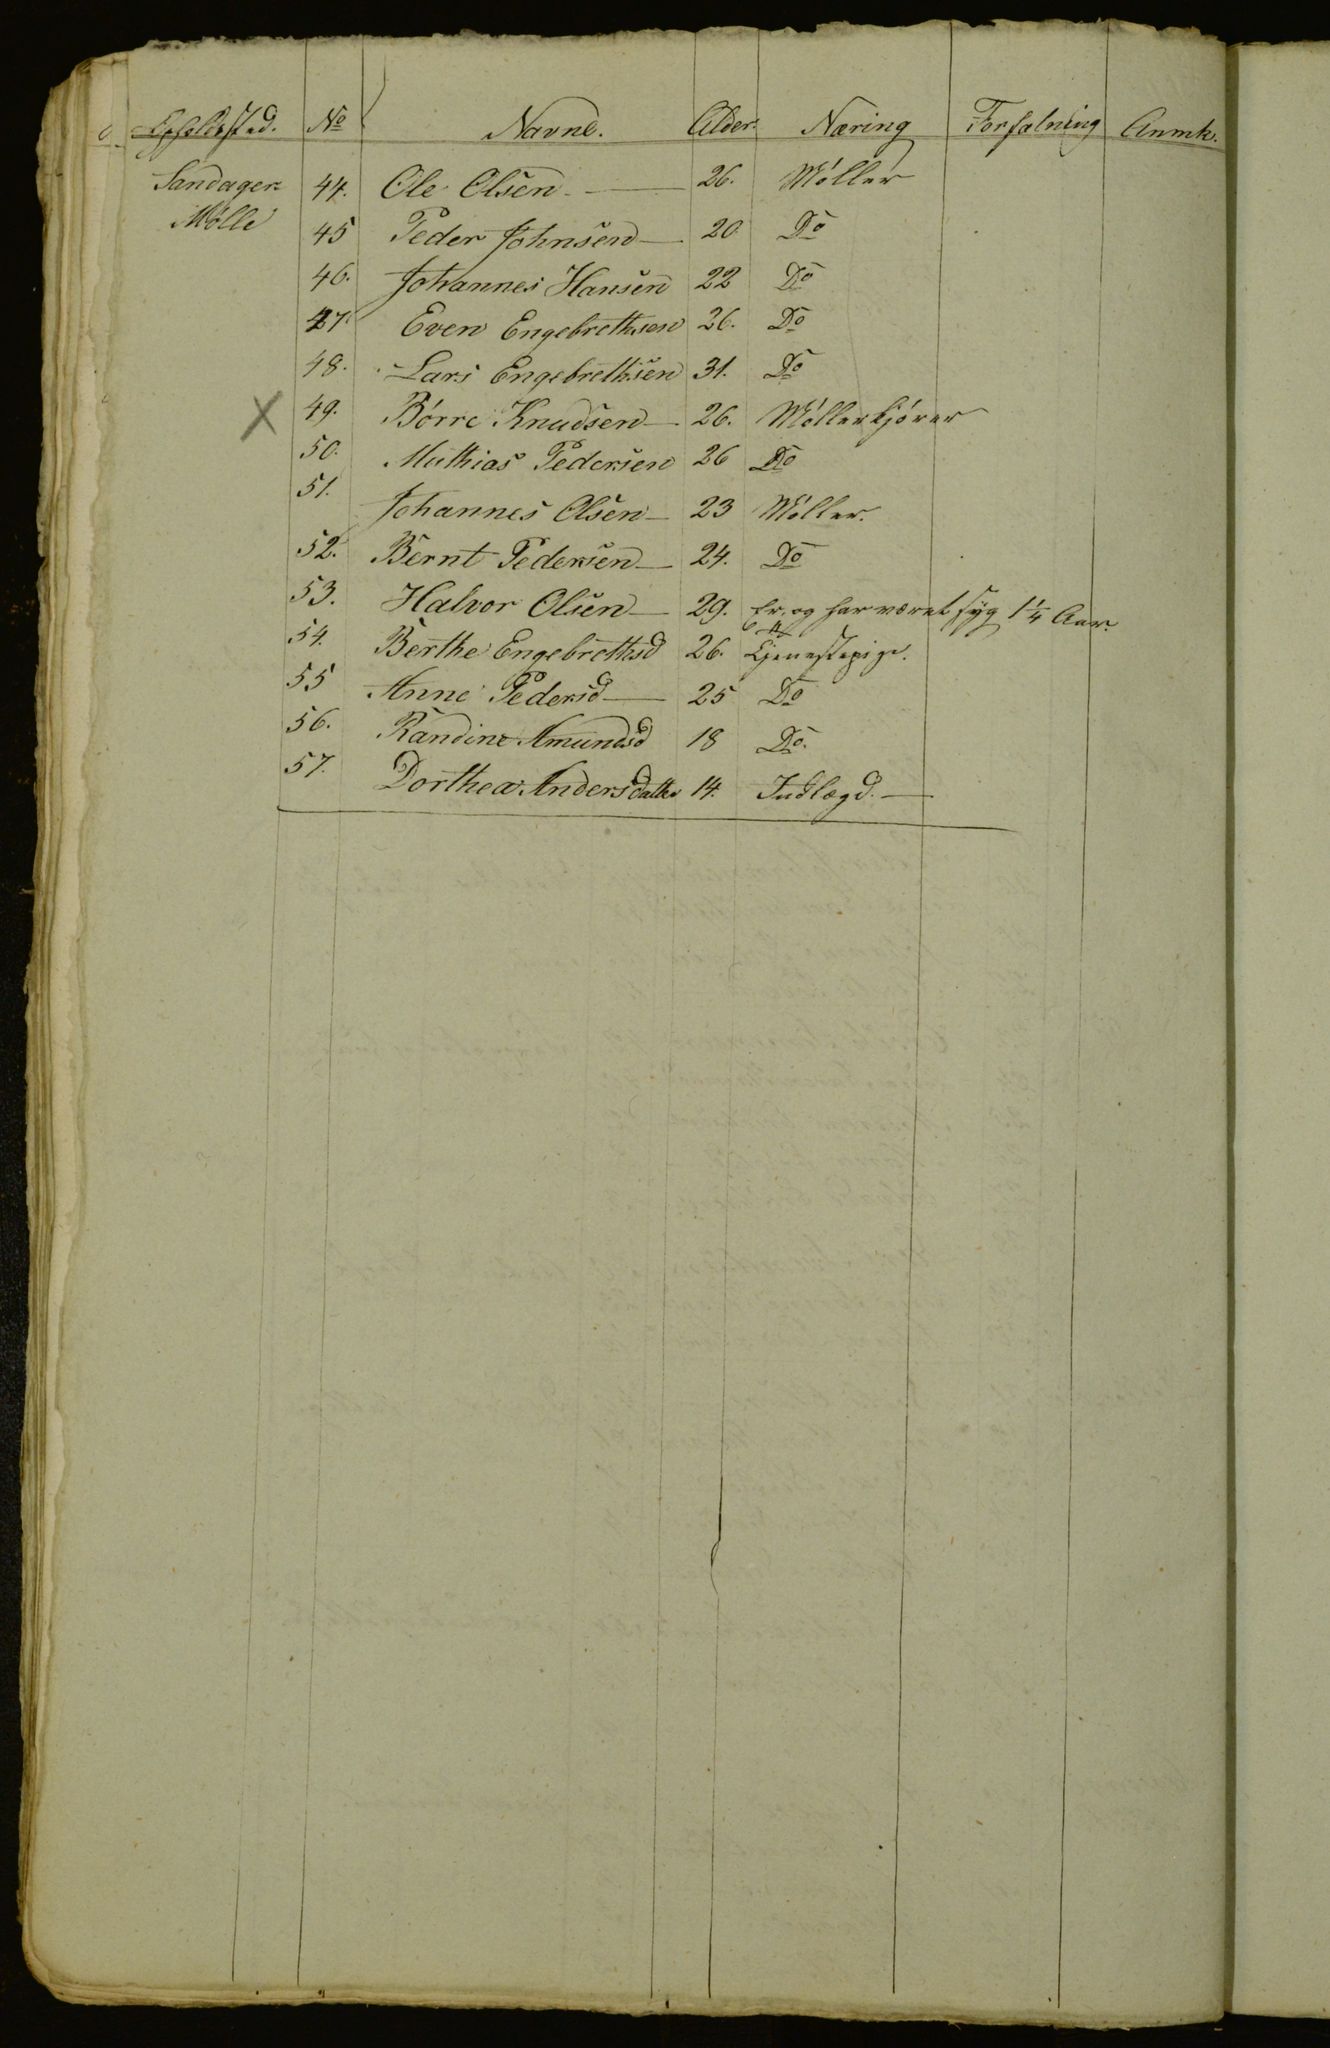 Opholdssted. No Navne. Alder. Næring Forfatning Anmk.
Sandager 44. Ole Olsen — 26. Møller
Mølle 45 Peder Johnsen — 20 Do
46. Johannes Hansen 22 Do
47. Even Engebrethsen 26. Do
48. Lars Engebrethsen 31. Do
X 49. Børre Knudsen — 26. Møllerkjører
50. Mathias Pedersen 26 Do
51. Johannes Olsen — 23 Møller.
52. Bernt Pedersen — 24. Do
53. Halvor Olsen — 29. Er og har været syg 1 1/4 Aar.
54. Berthe Engebrethsd 26. Tjenestepige.
55 Anne Pedersd — 25 Do
56. Randine Amundsd 18 Do.
57. Dorthea Andersdatter 14. Indlægd. —